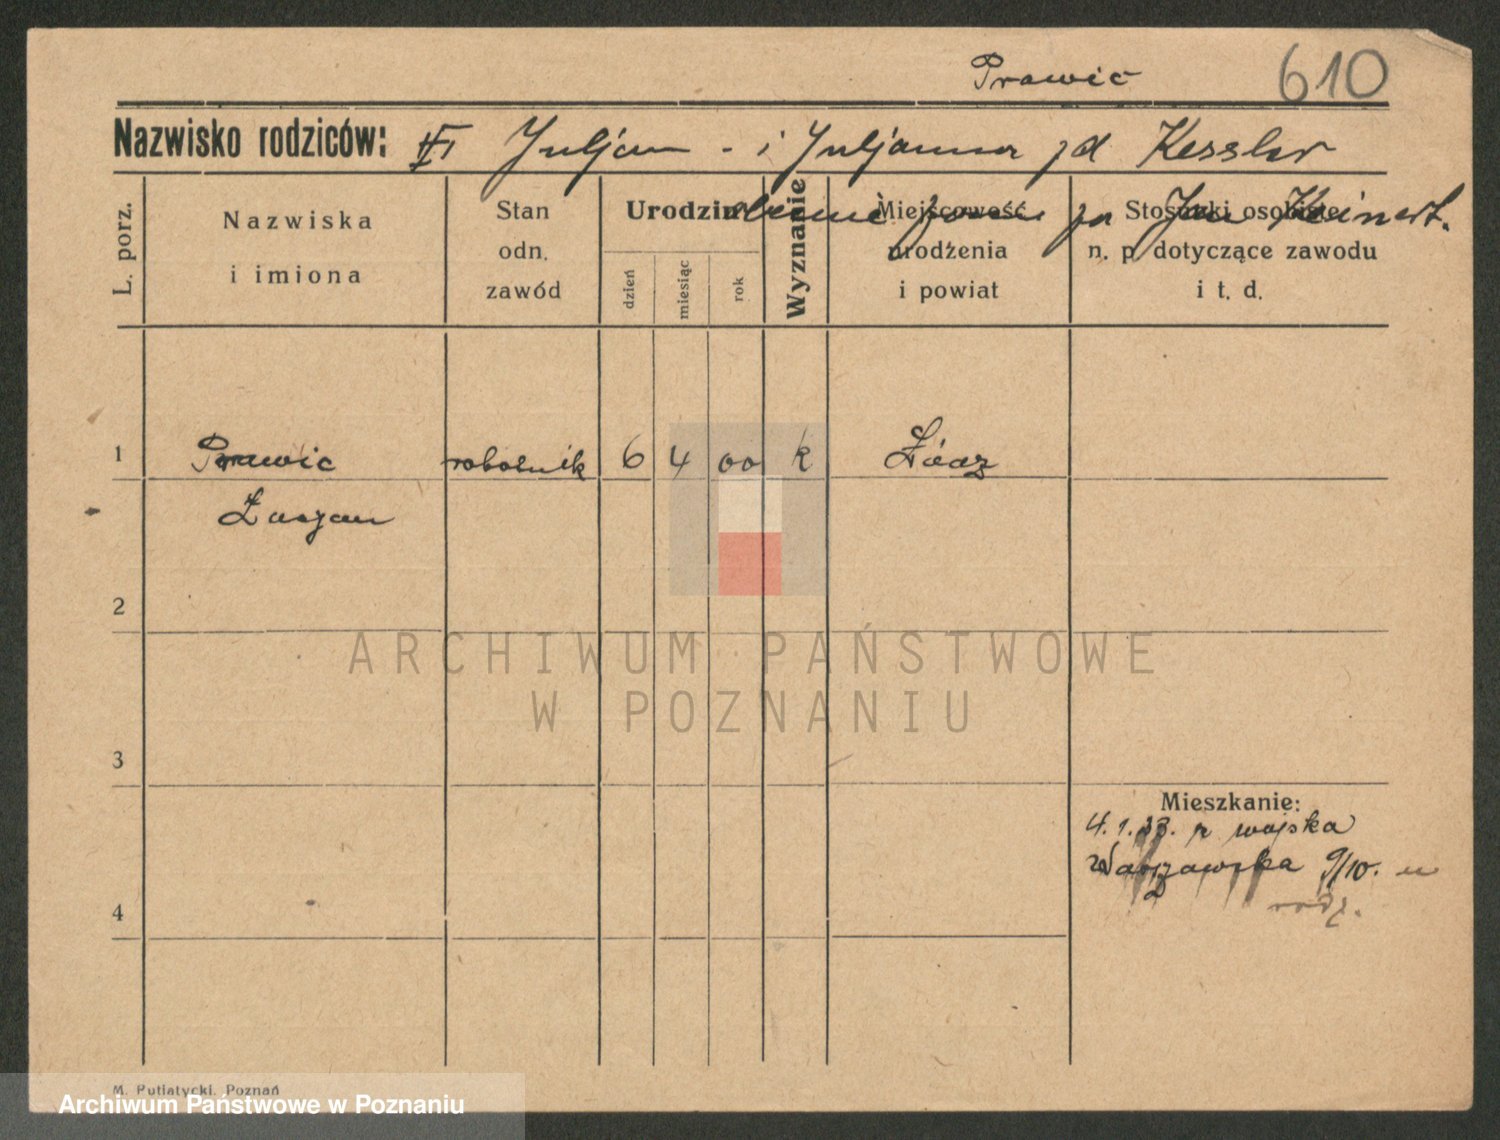 Prawic 610
Nazwisko rodziców: Juljan - i Juljanna zd Kessler
obecnie za Jan Keinert.
L. porz.
Nazwiska
i imiona
Stan
odn.
zawód
Urodzin
dzień
miesiąc
rok
Wyznanie
Miejscowość
urodzenia
i powiat
Stosunki osobiste
n. p. dotyczące zawodu
i t. d.
1 Prawic robotnik 6 4 00 k Łódź
Lucjan
2
3
4
Mieszkanie:
4.1.33. z wojska
Warszawska 9/10. u
rodz.
M. Putiatycki. Poznań
ARCHIWUM PAŃSTWOWE
W POZNANIU
Archiwum Państwowe w Poznaniu